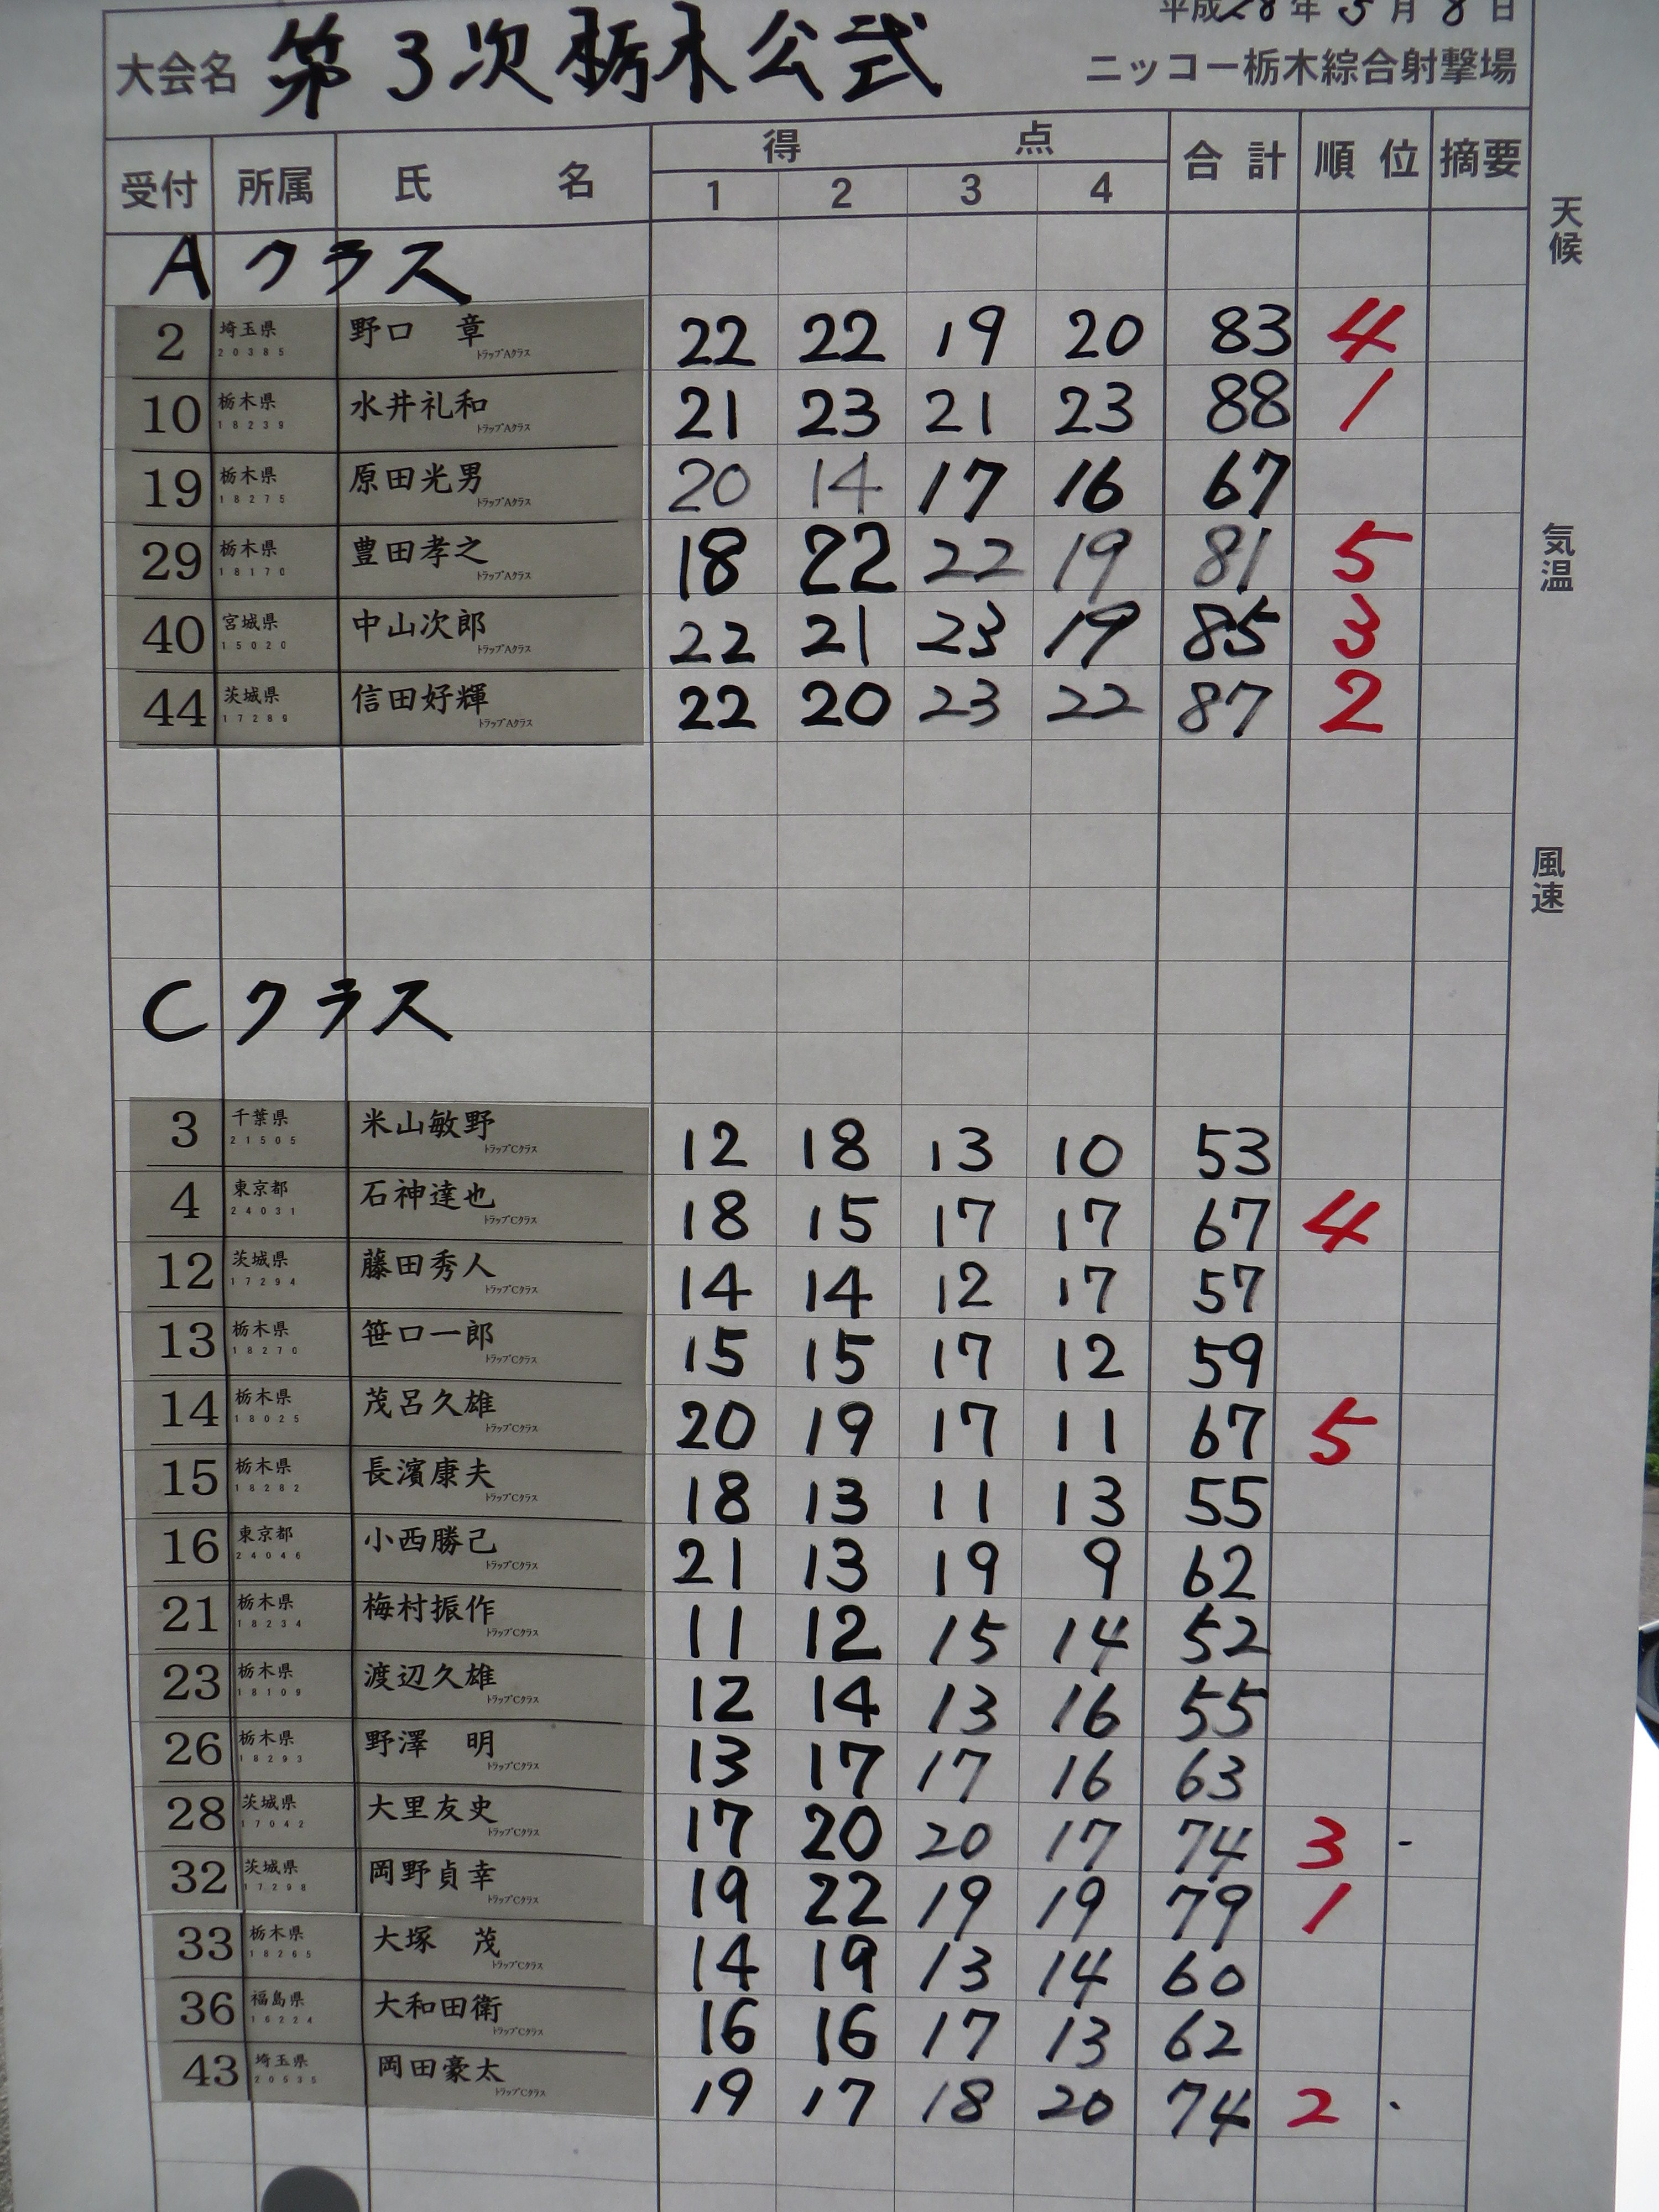 平成28年5月8日
大会名 第3次栃木公式 ニッコー栃木綜合射撃場
受付 所属 氏名 得点 合計 順位 摘要
1 2 3 4
天候
気温
風速
Aクラス
2 埼玉県 20385 野口 章 トラップAクラス 22 22 19 20 83 4
10 栃木県 18239 水井礼和 トラップAクラス 21 23 21 23 88 1
19 栃木県 18275 原田光男 トラップAクラス 20 14 17 16 67
29 栃木県 18170 豊田孝之 トラップAクラス 18 22 22 19 81 5
40 宮城県 15020 中山次郎 トラップAクラス 22 21 23 19 85 3
44 茨城県 17289 信田好輝 トラップAクラス 22 20 23 22 87 2
Cクラス
3 千葉県 21505 米山敏野 トラップCクラス 12 18 13 10 53
4 東京都 24031 石神達也 トラップCクラス 18 15 17 17 67 4
12 茨城県 17294 藤田秀人 トラップCクラス 14 14 12 17 57
13 栃木県 18270 笹口一郎 トラップCクラス 15 15 17 12 59
14 栃木県 18025 茂呂久雄 トラップCクラス 20 19 17 11 67 5
15 栃木県 18282 長濱康夫 トラップCクラス 18 13 11 13 55
16 東京都 24046 小西勝己 トラップCクラス 21 13 19 9 62
21 栃木県 18234 梅村振作 トラップCクラス 11 12 15 14 52
23 栃木県 18109 渡辺久雄 トラップCクラス 12 14 13 16 55
26 栃木県 18293 野澤 明 トラップCクラス 13 17 17 16 63
28 茨城県 17042 大里友史 トラップCクラス 17 20 20 17 74 3
32 茨城県 17298 岡野貞幸 トラップCクラス 19 22 19 19 79 1
33 栃木県 18265 大塚 茂 トラップCクラス 14 19 13 14 60
36 福島県 16224 大和田衛 トラップCクラス 16 16 17 13 62
43 埼玉県 20535 岡田豪太 トラップCクラス 19 17 18 20 74 2